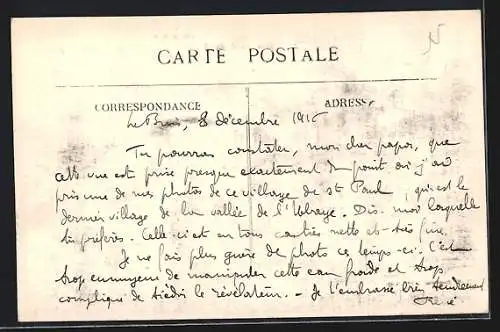 CARTE POSTALE
CORRESPONDANCE
ADRESSE
8 décembre
Tu pourras constater, mon cher papa, que
cette vue est prise presque exactement du point où j'ai
pris une de mes photos de ce village de St Paul, qui est le
dernier village de la vallée de l'Ubaye. Dis-moi laquelle
tu préfères. Celle-ci est en tous cas très nette et très fine.
Je ne fais plus guère de photo ce temps-ci. C'est
trop ennuyeux de manipuler cette eau froide et trop
compliqué de tiédir le révélateur. - Je t'embrasse bien tendrement
René